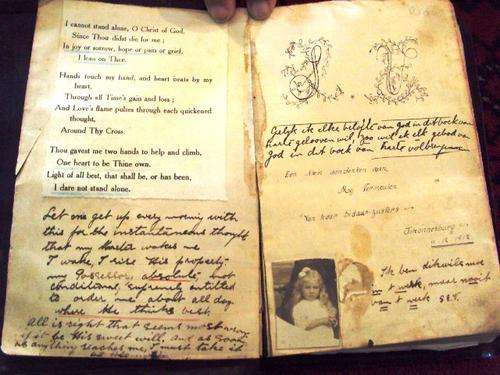 I cannot stand alone, O Christ of God,
Since Thou didst die for me;
In joy or sorrow, hope or pain or grief,
I lean on Thee.
Hands touch my hand, and heart beats by my
heart,
Through all Time's gain and loss;
And Love's flame pulses through each quickened
thought,
Around Thy Cross.
Thou gavest me two hands to help and climb,
One heart to be Thine own.
Light of all best, that shall be, or has been,
I dare not stand alone.
Let me get up every morning with
this for the instantaneous thought
that my Master wakes me
I wake, I rise His property
my Possessor, absolute, not
conditional, supremely entitled
to order me about all day
where He thinks best.
All is right that seems most wrong
if it be His sweet will, and as soon
as anything reaches me, I must take it
Gelijk ik elke belofte van God in dit boek van
harte gelooven wil, zoo wil ik elk gebod van
God in dit boek van harte volbrengen
Een klein aandenken aan
May
Van haar bidaar-zusters
Johannesburg
Ik ben dikwels moe
in 't werk, maar nooit
van 't werk